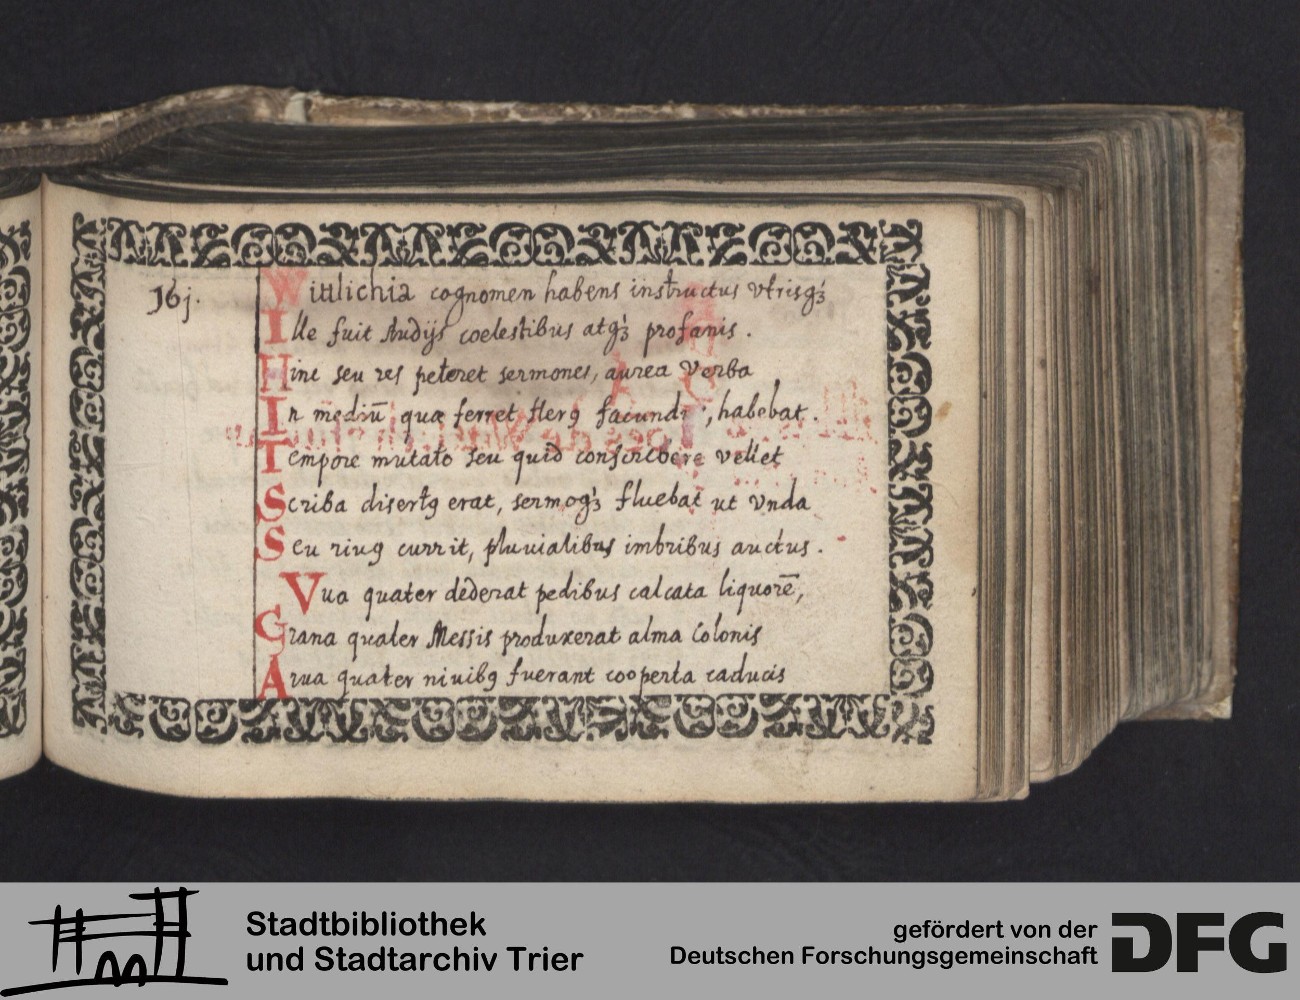 16j.
Wittlichia cognomen habens instructus vtrisqꝫ
Ille fuit studijs coelestibus atqꝫ profanis.
Hinc seu res peteret sermones, aurea verba
In mediū quæ ferret Herꝰ facundꝰ, habebat.
Tempore mutato seu quid vellet
Scriba disertꝰ erat, sermoqꝫ fluebat ut vnda
Seu riuꝰ currit, pluuialibus imbribus auctus.
Vua quater dederat pedibus calcata liquorē,
Grana quater Messis produxerat alma Colonis
Arua quater niuibꝰ fuerant cooperta caducis
Stadtbibliothek
und Stadtarchiv Trier
gefördert von der
Deutschen Forschungsgemeinschaft
DFG